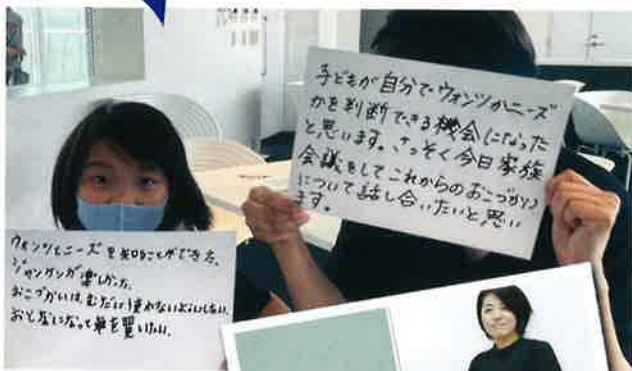 子どもが自分でウォンツかニーズ
かを判断できる機会になった
と思います。さっそく今日家族
会議をしてこれからのおこづかい
について話し合いたいと思い
ます。
ウォンツとニーズを知ることができた。
ジャンケンが楽しかった。
おこづかいは、むだに使わないようにしたい。
おとなになって車を買いたい。